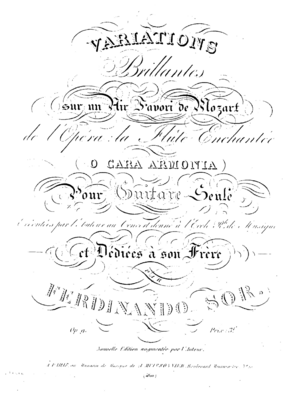 VARIATIONS
Brillantes
sur un Air Favori de Mozart
de l'Opéra: la Flûte Enchantée
(O CARA ARMONIA)
Pour Guitare Seule
Exécutées par l'Auteur au Concert donné à l'Ecole Rle. de Musique
et Dédiées à son Frère
PAR
FERDINANDO SOR.
Op. 9. Prix:
Nouvelle Edition augmentée par l'Auteur.
A PARIS, au Magasin de Musique de A. MEISSONNIER, Boulevard